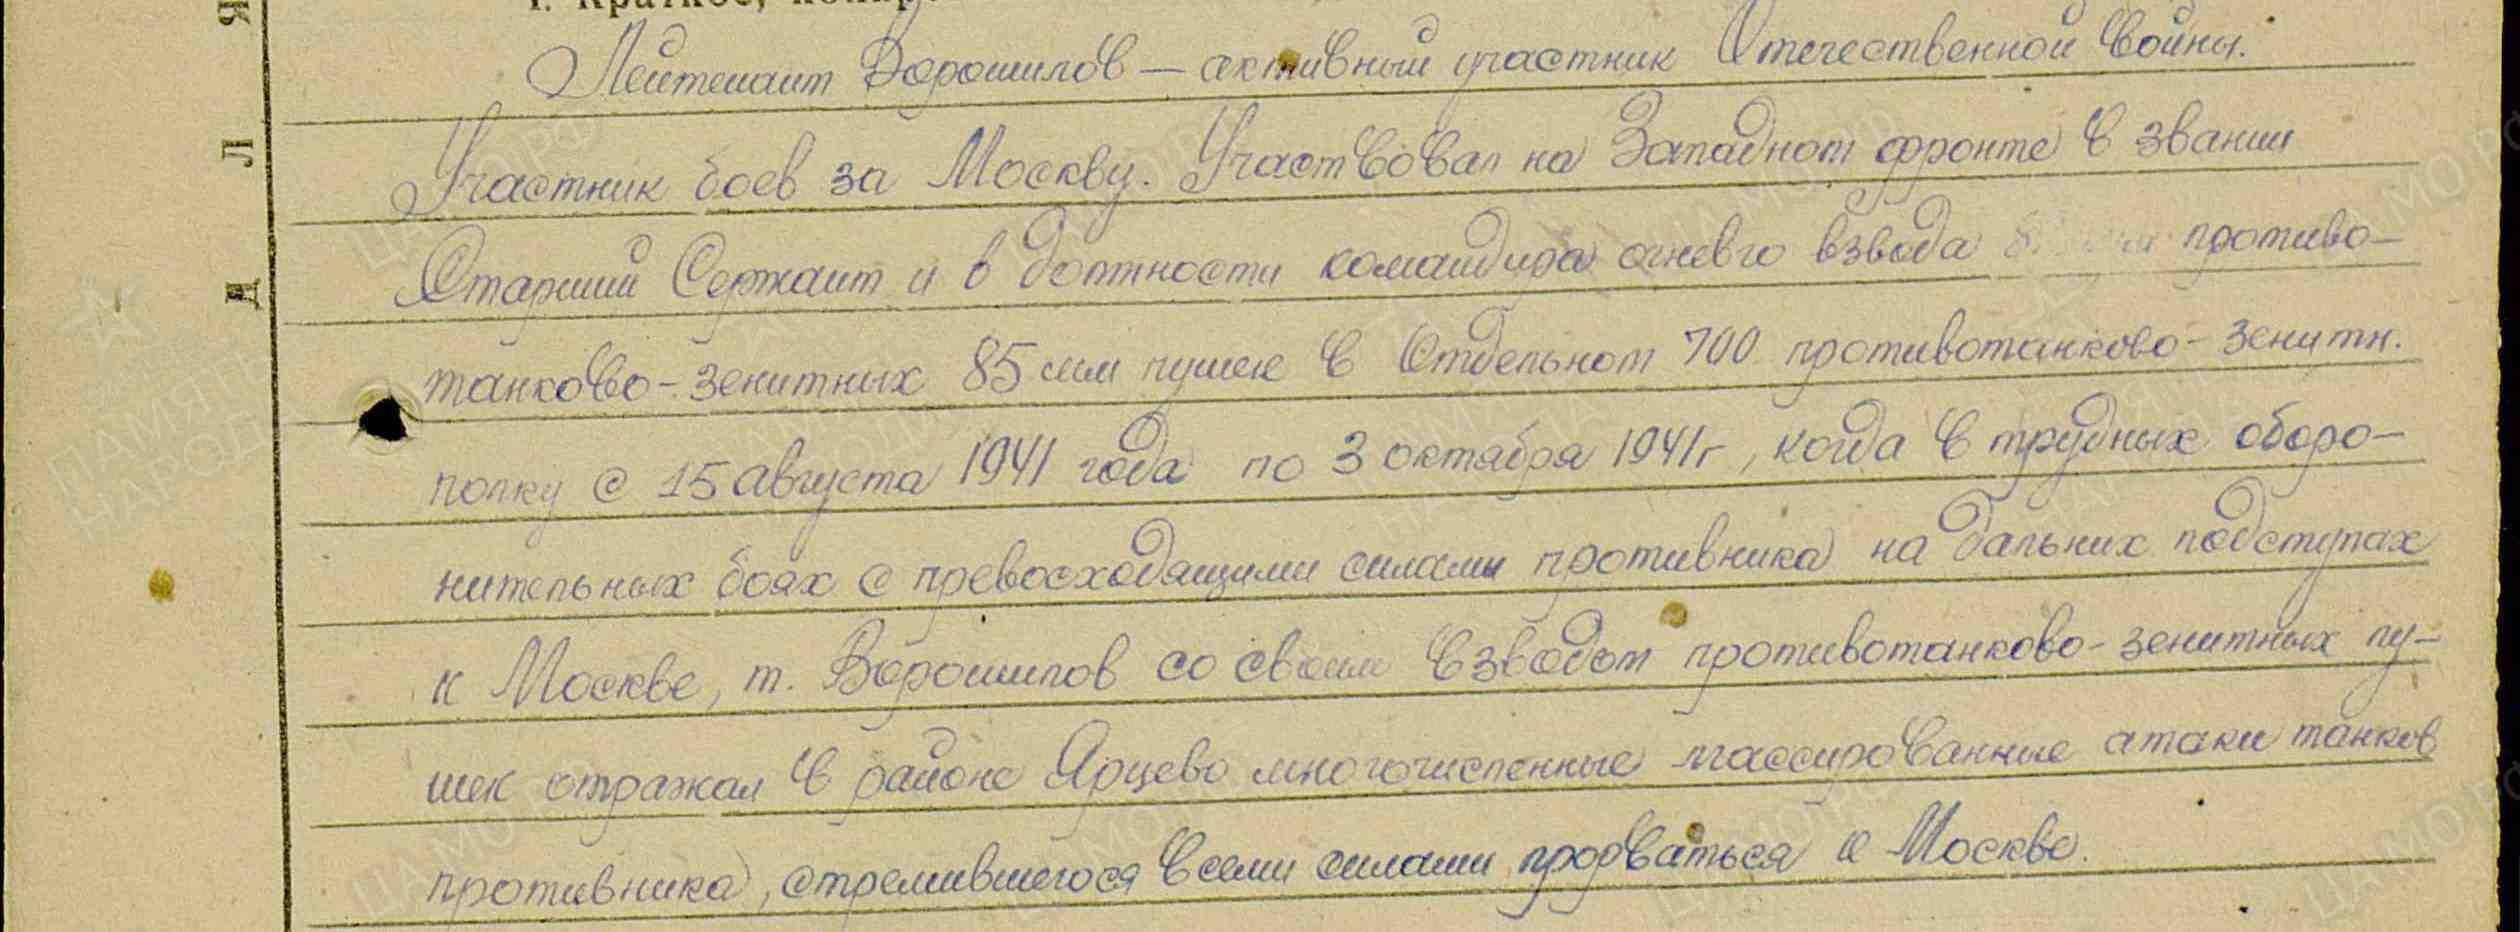 1. Краткое,
Лейтенант Ворошилов — активный участник Отечественной войны.
Участник боев за Москву. Участвовал на Западном фронте в звании
Старший Сержант и в должности командира огневго взвода противо-
танково-зенитных 85 мм пушек в Отдельном 700 противотанково-зенитн.
полку с 15 августа 1941 года по 3 октября 1941г, когда в трудных оборо-
нительных боях с превосходящими силами противника на дальних подступах
к Москве, т. Ворошилов со своим взводом противотанково-зенитных пу-
шек отражал в районе Ярцево многочисленные массированные атаки танков
противника, стремившегося всеми силами прорваться к Москве.